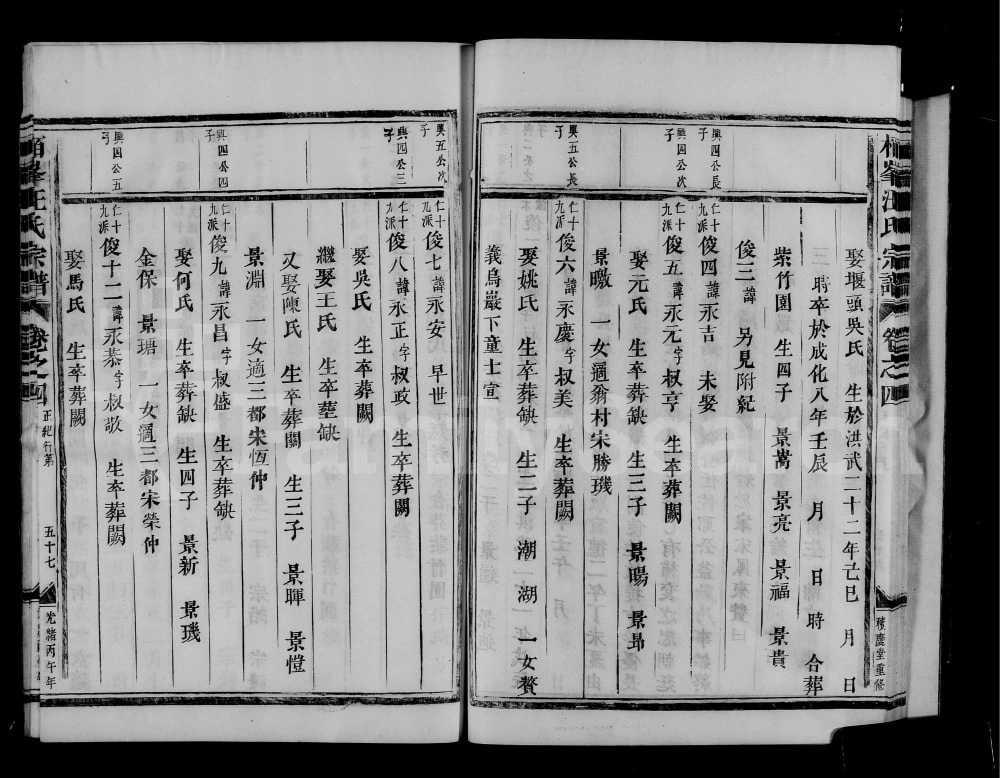 柏峯汪氏宗譜 卷之四
積慶堂重修
娶堰頭吳氏 生於洪武二十二年己巳 月 日
時卒於成化八年壬辰 月 日 時 合葬
紫竹園 生四子 景嵩 景亮 景福 景貴
俊三諱 另見附紀
興四公長子
仁十九派俊四諱永吉 未娶
興四公次子
仁十九派俊五諱永元字叔亨 生卒葬闕
娶元氏 生卒葬缺 生三子 景暘 景昴
景暾 一女適翁村宋勝璣
興五公長子
仁十九派俊六諱永慶字叔美 生卒葬闕
娶姚氏 生卒葬缺 生二子 潮 湖 一女贅
義烏巖下童士宣
興五公次子
仁十九派俊七諱永安 早世
興四公三子
仁十九派俊八諱永正字叔政 生卒葬闕
娶吳氏 生卒葬闕
繼娶王氏 生卒塟缺
又娶陳氏 生卒葬闕 生三子 景暉 景愷
景淵 一女適三都宋恆仲
興四公四子
仁十九派俊九諱永昌字叔盛 生卒葬缺
娶何氏 生卒葬缺 生四子 景新 景璣
金保 景瑭 一女適三都宋榮仲
興四公五子
仁十九派俊十二諱永恭字叔敬 生卒葬闕
娶馬氏 生卒葬闕
柏峯汪氏宗譜 卷之四 正紀行第 五十七
光緒丙午年